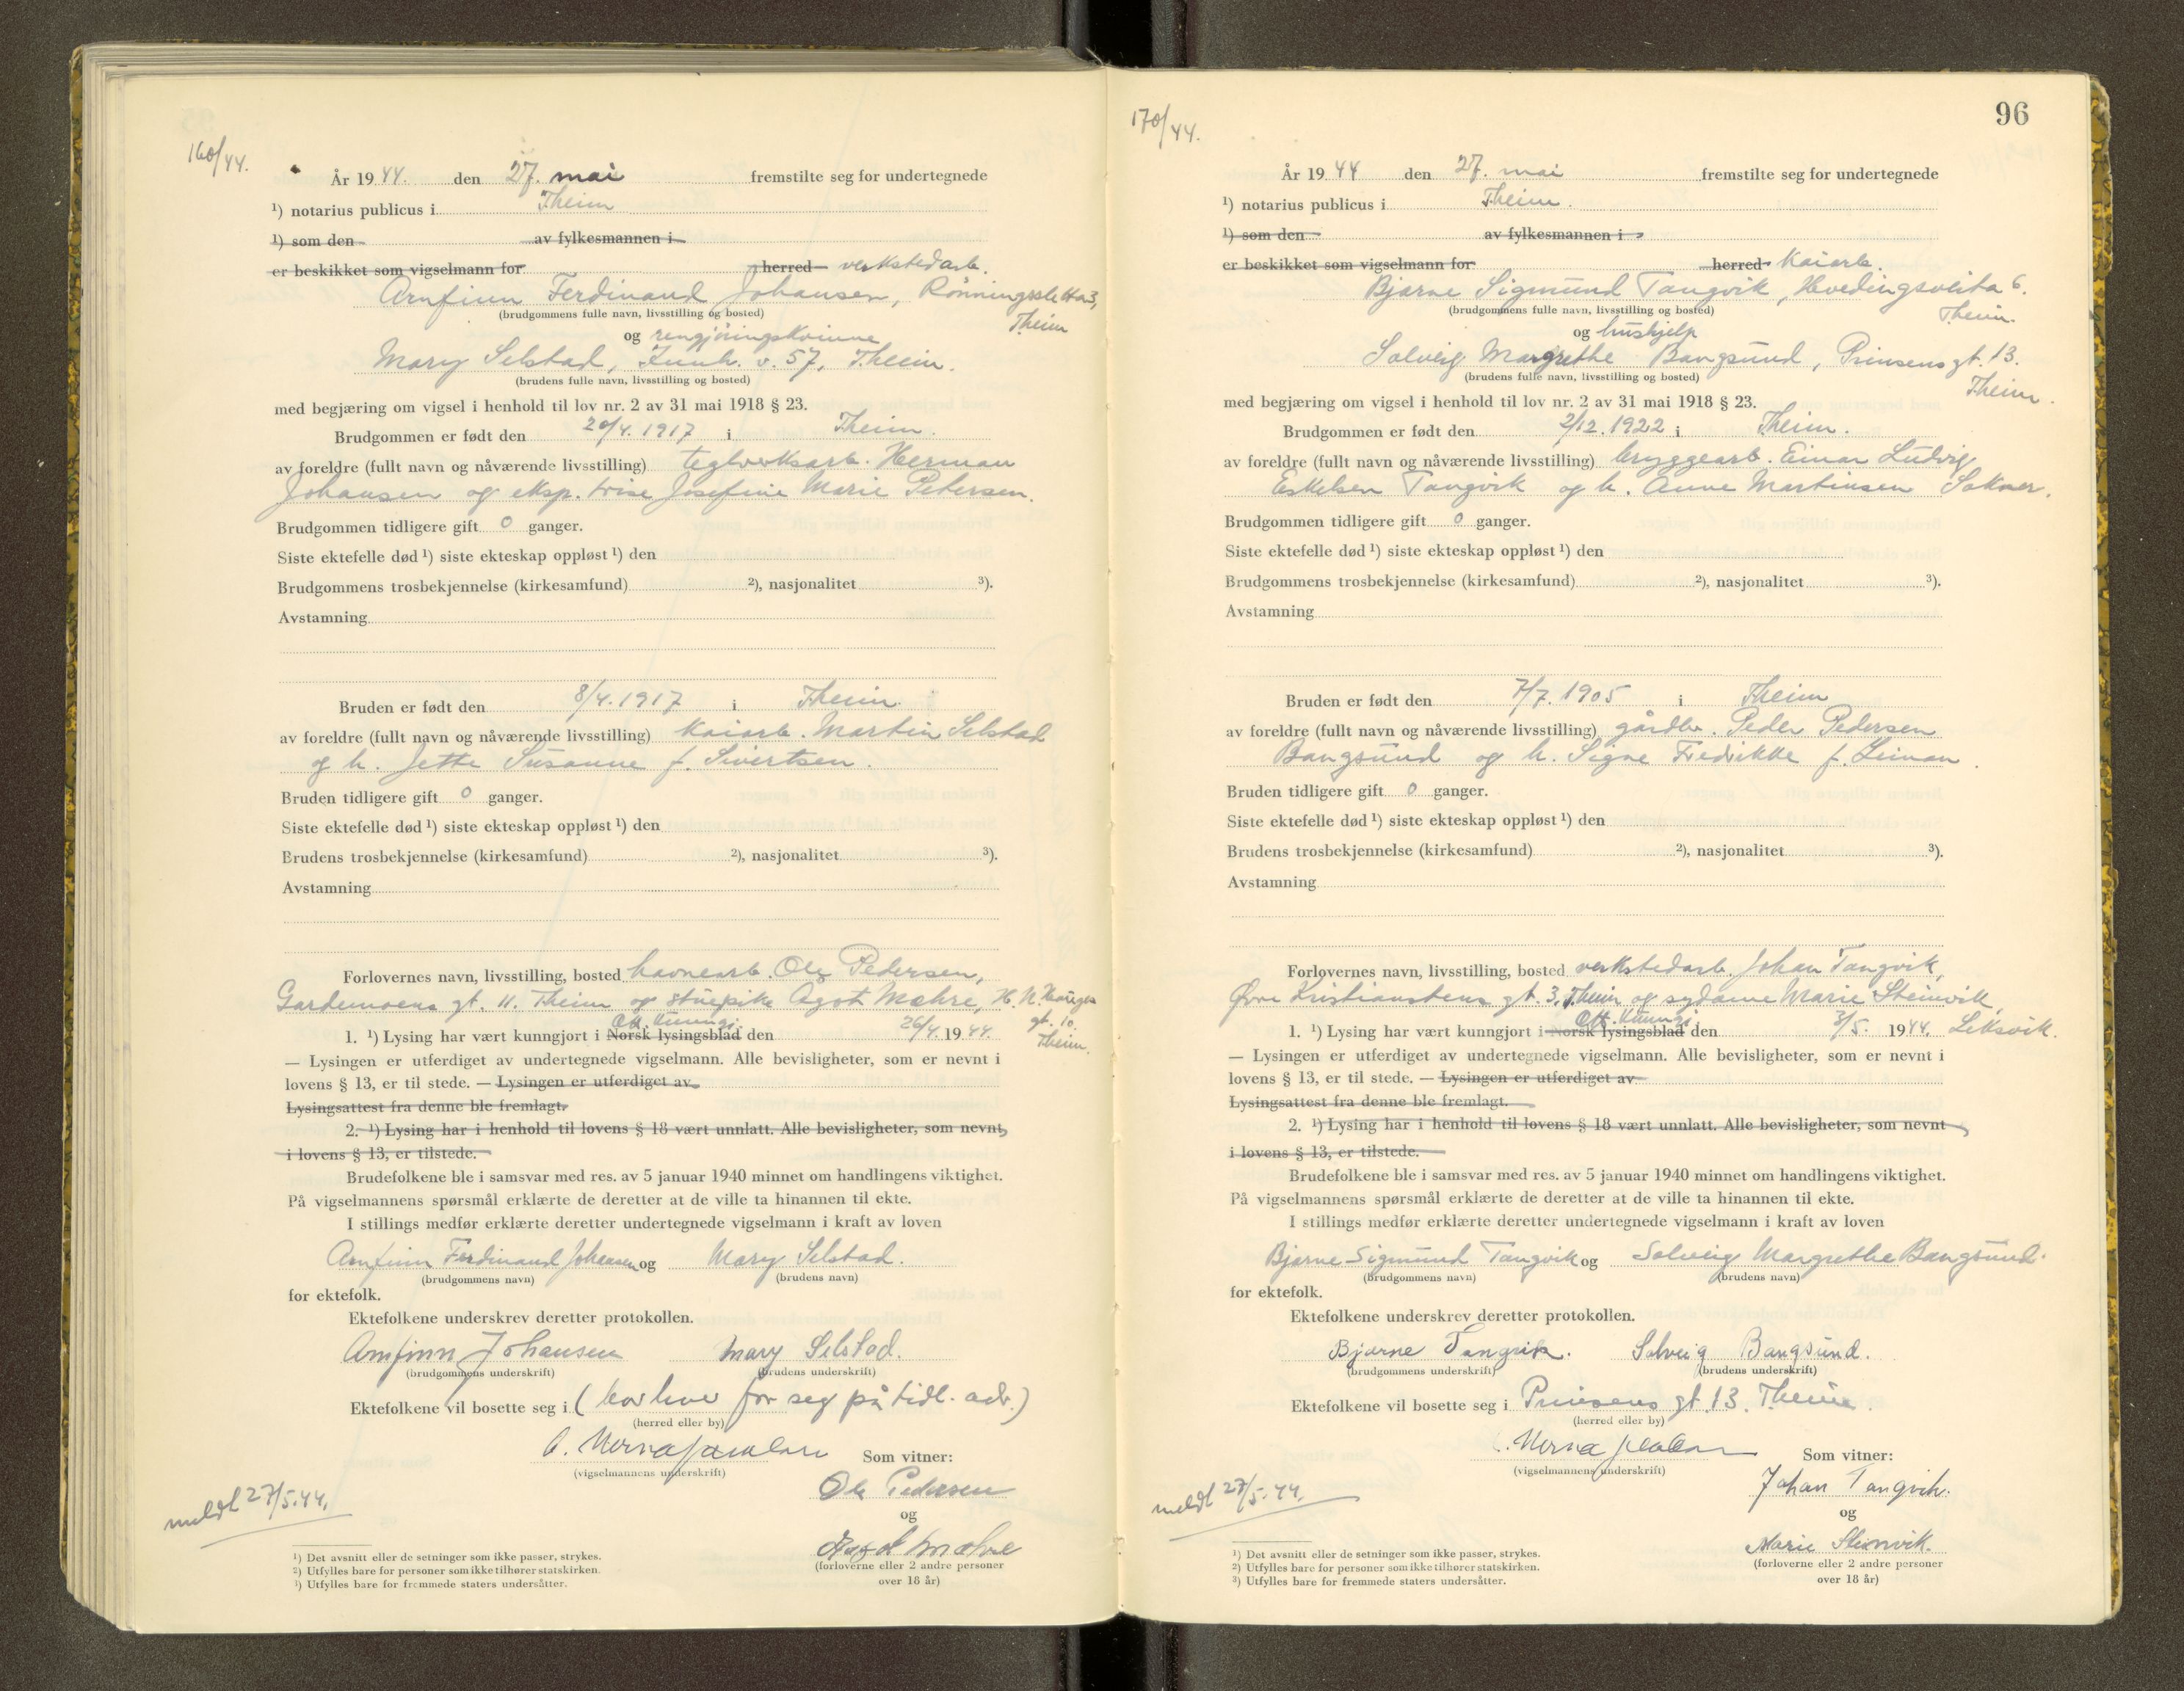 160/44.
År 19 44. den 27. mai fremstilte seg for undertegnede
¹) notarius publicus i Theim
¹) som den av fylkesmannen i
er beskikket som vigselmann for herred verkstedarb.
Arnfinn Ferdinand Johansen, Rönningsletta 3,
(brudgommens fulle navn, livsstilling og bosted) Theim
og rengjöringskvinne
Mary Selstad, Innh. v. 57, Theim.
(brudens fulle navn, livsstilling og bosted)
med begjæring om vigsel i henhold til lov nr. 2 av 31 mai 1918 § 23.
Brudgommen er født den 20/4. 1917 i Theim.
av foreldre (fullt navn og nåværende livsstilling) teglverksarb. Herman
Johansen og eksp. trise Josefine Marie Petersen.
Brudgommen tidligere gift 0 ganger.
Siste ektefelle død ¹) siste ekteskap oppløst ¹) den
Brudgommens trosbekjennelse (kirkesamfund) ²), nasjonalitet ³).
Avstamning
Bruden er født den 8/4. 1917 i Theim.
av foreldre (fullt navn og nåværende livsstilling) kaiarb. Martin Selstad
og h. Jette Susanne f. Sivertsen.
Bruden tidligere gift 0 ganger.
Siste ektefelle død ¹) siste ekteskap oppløst ¹) den
Brudens trosbekjennelse (kirkesamfund) ²), nasjonalitet ³).
Avstamning
Forlovernes navn, livsstilling, bosted havnearb. Ole Pedersen,
Gardemoens gt. 11. Theim og stuepike Agot Mæhre, H. N. Hauges
gt. 10.
Theim.
Off. Kunngj.
1. ¹) Lysing har vært kunngjort i Norsk lysingsblad den 26/4. 19 44.
— Lysingen er utferdiget av undertegnede vigselmann. Alle bevisligheter, som er nevnt i
lovens § 13, er til stede. — Lysingen er utferdiget av
Lysingsattest fra denne ble fremlagt.
2. ¹) Lysing har i henhold til lovens § 18 vært unnlatt. Alle bevisligheter, som nevnt
i lovens § 13, er tilstede.
Brudefolkene ble i samsvar med res. av 5 januar 1940 minnet om handlingens viktighet.
På vigselmannens spørsmål erklærte de deretter at de ville ta hinannen til ekte.
I stillings medfør erklærte deretter undertegnede vigselmann i kraft av loven
Arnfinn Ferdinand Johansen og Mary Selstad.
(brudgommens navn) (brudens navn)
for ektefolk.
Ektefolkene underskrev deretter protokollen.
Arnfinn Johansen Mary Selstad.
(brudgommens underskrift) (brudens underskrift)
Ektefolkene vil bosette seg i (hver for seg på tidl. adr.)
(herred eller by)
Som vitner:
(vigselmannens underskrift)
Ole Pedersen
meldt 27/5.44.
og
Agot Mæhre
(forloverne eller 2 andre personer
over 18 år)
¹) Det avsnitt eller de setninger som ikke passer, strykes.
²) Utfylles bare for personer som ikke tilhører statskirken.
³) Utfylles bare for fremmede staters undersåtter.
96
170/44.
År 19 44 den 27. mai fremstilte seg for undertegnede
¹) notarius publicus i Theim.
¹) som den av fylkesmannen i
er beskikket som vigselmann for herred Kaiarb.
Bjarne Sigmund Tangvik, Hvedingsveita 6.
(brudgommens fulle navn, livsstilling og bosted) Theim.
og hushjelp
Solveig Margrethe Bangsund, Prinsens gt. 13.
(brudens fulle navn, livsstilling og bosted) Theim.
med begjæring om vigsel i henhold til lov nr. 2 av 31 mai 1918 § 23.
Brudgommen er født den 2/12. 1922 i Theim.
av foreldre (fullt navn og nåværende livsstilling) bryggearb. Einar Ludvig
Eskelsen Tangvik og h. Anne Martinsen Sakner.
Brudgommen tidligere gift 0 ganger.
Siste ektefelle død ¹) siste ekteskap oppløst ¹) den
Brudgommens trosbekjennelse (kirkesamfund) ²), nasjonalitet ³).
Avstamning
Bruden er født den 7/7. 1905 i Theim
av foreldre (fullt navn og nåværende livsstilling) gårdbr. Peder Pedersen
Bangsund og h. Signe Fredrikke f. Leiman.
Bruden tidligere gift 0 ganger.
Siste ektefelle død ¹) siste ekteskap oppløst ¹) den
Brudens trosbekjennelse (kirkesamfund) ²), nasjonalitet ³).
Avstamning
Forlovernes navn, livsstilling, bosted verkstedarb. Johan Tangvik,
Øvre Kristianstens gt. 3. Theim og sydame Marie Steinvik,
Off. Kunngj.
1. ¹) Lysing har vært kunngjort i Norsk lysingsblad den 3/5. 19 44. Leksvik.
— Lysingen er utferdiget av undertegnede vigselmann. Alle bevisligheter, som er nevnt i
lovens § 13, er til stede. — Lysingen er utferdiget av
Lysingsattest fra denne ble fremlagt.
2. ¹) Lysing har i henhold til lovens § 18 vært unnlatt. Alle bevisligheter, som nevnt
i lovens § 13, er tilstede.
Brudefolkene ble i samsvar med res. av 5 januar 1940 minnet om handlingens viktighet.
På vigselmannens spørsmål erklærte de deretter at de ville ta hinannen til ekte.
I stillings medfør erklærte deretter undertegnede vigselmann i kraft av loven
Bjarne Sigmund Tangvik og Solveig Margrethe Bangsund.
(brudgommens navn) (brudens navn)
for ektefolk.
Ektefolkene underskrev deretter protokollen.
Bjarne Tangvik. Solveig Bangsund.
(brudgommens underskrift) (brudens underskrift)
Ektefolkene vil bosette seg i Prinsens gt. 13. Theim.
(herred eller by)
Som vitner:
(vigselmannens underskrift)
Johan Tangvik.
meldt 27/5.44.
og
Marie Steinvik.
(forloverne eller 2 andre personer
over 18 år)
¹) Det avsnitt eller de setninger som ikke passer, strykes.
²) Utfylles bare for personer som ikke tilhører statskirken.
³) Utfylles bare for fremmede staters undersåtter.